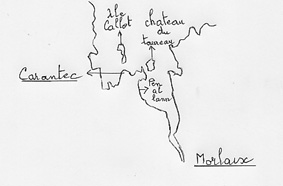 Ile
Callot
chateau
du
taureau
Carantec
Pen
al
lann
Morlaix